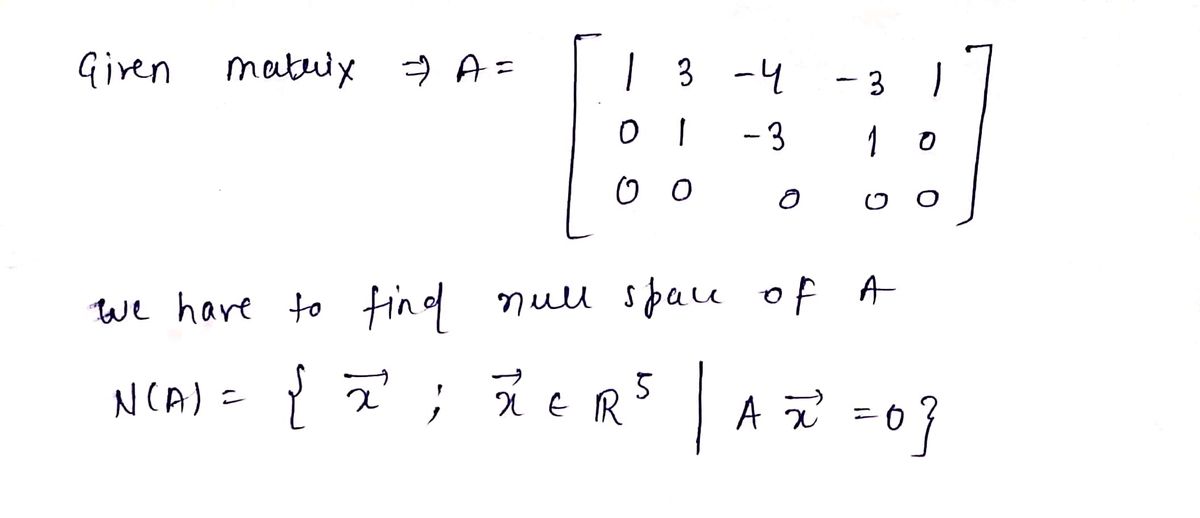 Given matrix ⇒ A = [ 1 3 -4 -3 1
0 1 -3 1 0
0 0 0 0 0 ]
we have to find null space of A
N(A) = { x⃗ ; x⃗ ∈ ℝ⁵ | A x⃗ = 0 }